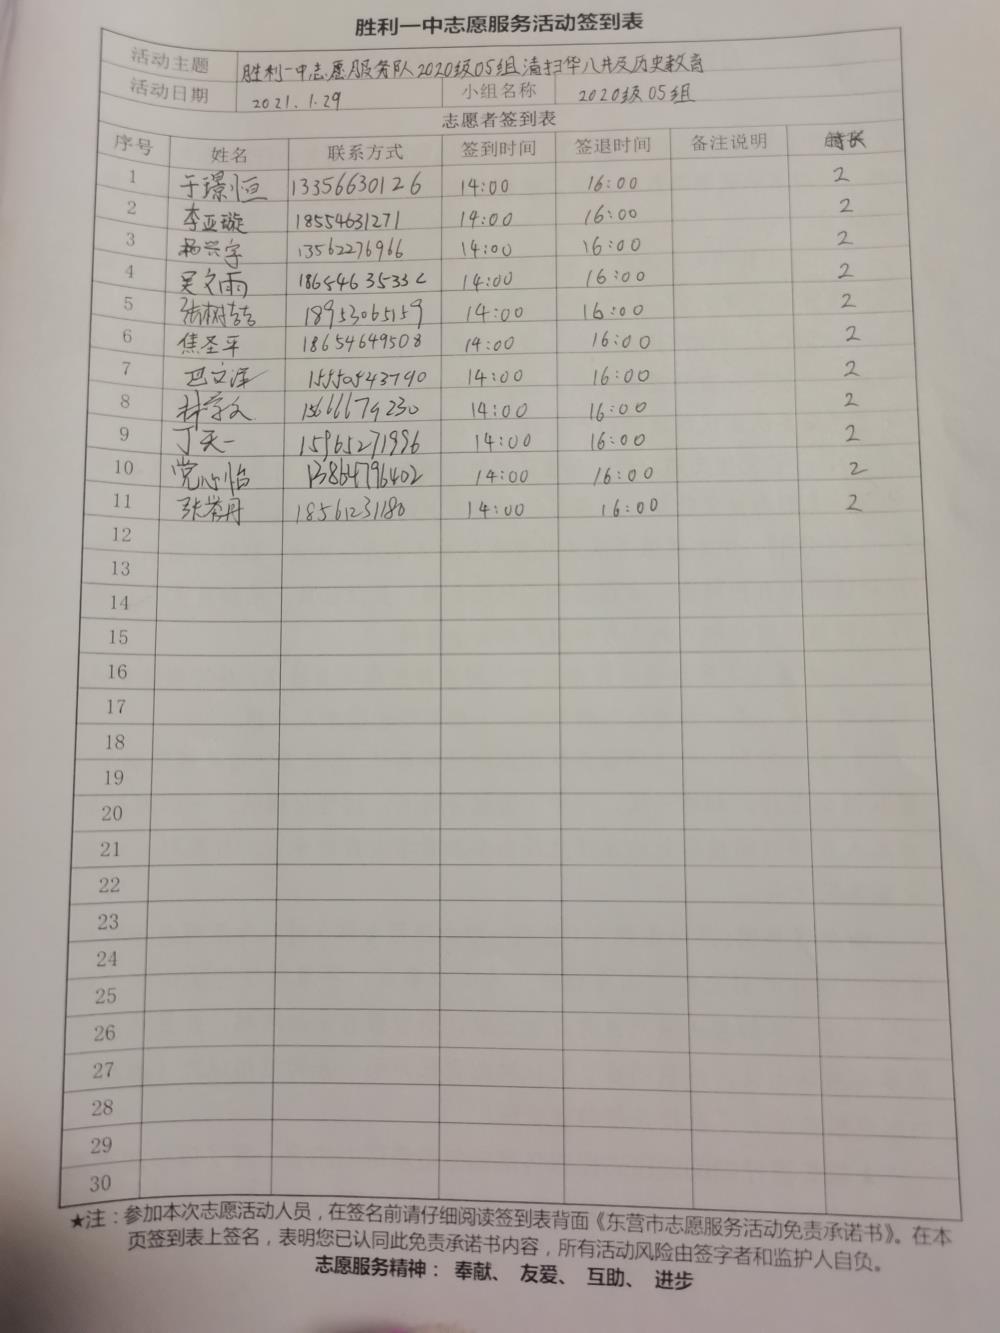 胜利一中志愿服务活动签到表
活动主题 胜利一中志愿服务队2020级05组清扫华八井及历史教育
活动日期 2021.1.29 小组名称 2020级05组
志愿者签到表
序号 姓名 联系方式 签到时间 签退时间 备注说明 时长
1 于璟恒 13356630126 14:00 16:00 2
2 李亚璇 18554631271 14:00 16:00 2
3 杨兴宇 13562276966 14:00 16:00 2
4 吴文雨 14:00 16:00 2
5 张树喆 18953065159 14:00 16:00 2
6 焦圣平 18654649508 14:00 16:00 2
7 巴文泽 15550543790 14:00 16:00 2
8 林学文 14:00 16:00 2
9 丁天一 15965271996 14:00 16:00 2
10 党心怡 13864796402 14:00 16:00 2
11 18561231180 14:00 16:00 2
12
13
14
15
16
17
18
19
20
21
22
23
24
25
26
27
28
29
30
★注：参加本次志愿活动人员，在签名前请仔细阅读签到表背面《东营市志愿服务活动免责承诺书》。在本
页签到表上签名，表明您已认同此免责承诺书内容，所有活动风险由签字者和监护人自负。
志愿服务精神： 奉献、 友爱、 互助、 进步